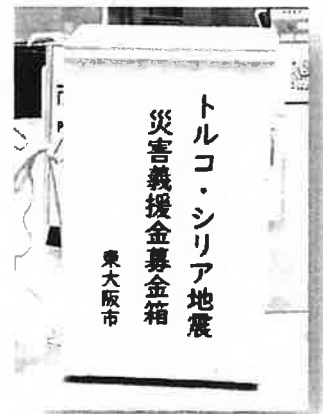 トルコ・シリア地震
災害義援金募金箱
東大阪市